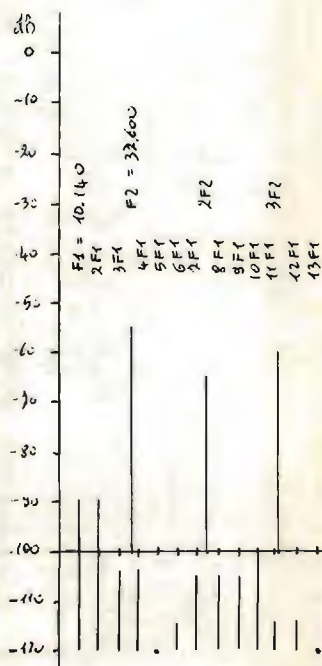 dB
0
-10
-20
-30
-40
-50
-60
-70
-80
-90
-100
-110
-120
F1 = 10.140
2F1
3F1
F2 = 37.600
4F1
5F1
6F1
7F1
2F2
8F1
9F1
10F1
11F1
3F2
12F1
13F1